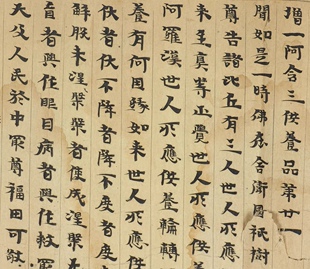 增一阿含三供養品第廿一
聞如是一時佛在舍衛國祇樹
尊告諸比丘有三人世人所應
來至真等正覺世人所應供養
阿羅漢世人所應供養輪轉
養有何因緣如來世人所應
伏者伏不降者降不度者度
解脫未涅槃者使成涅槃无
盲者與作眼目病者與作救
天及人民於中最尊福田可敬